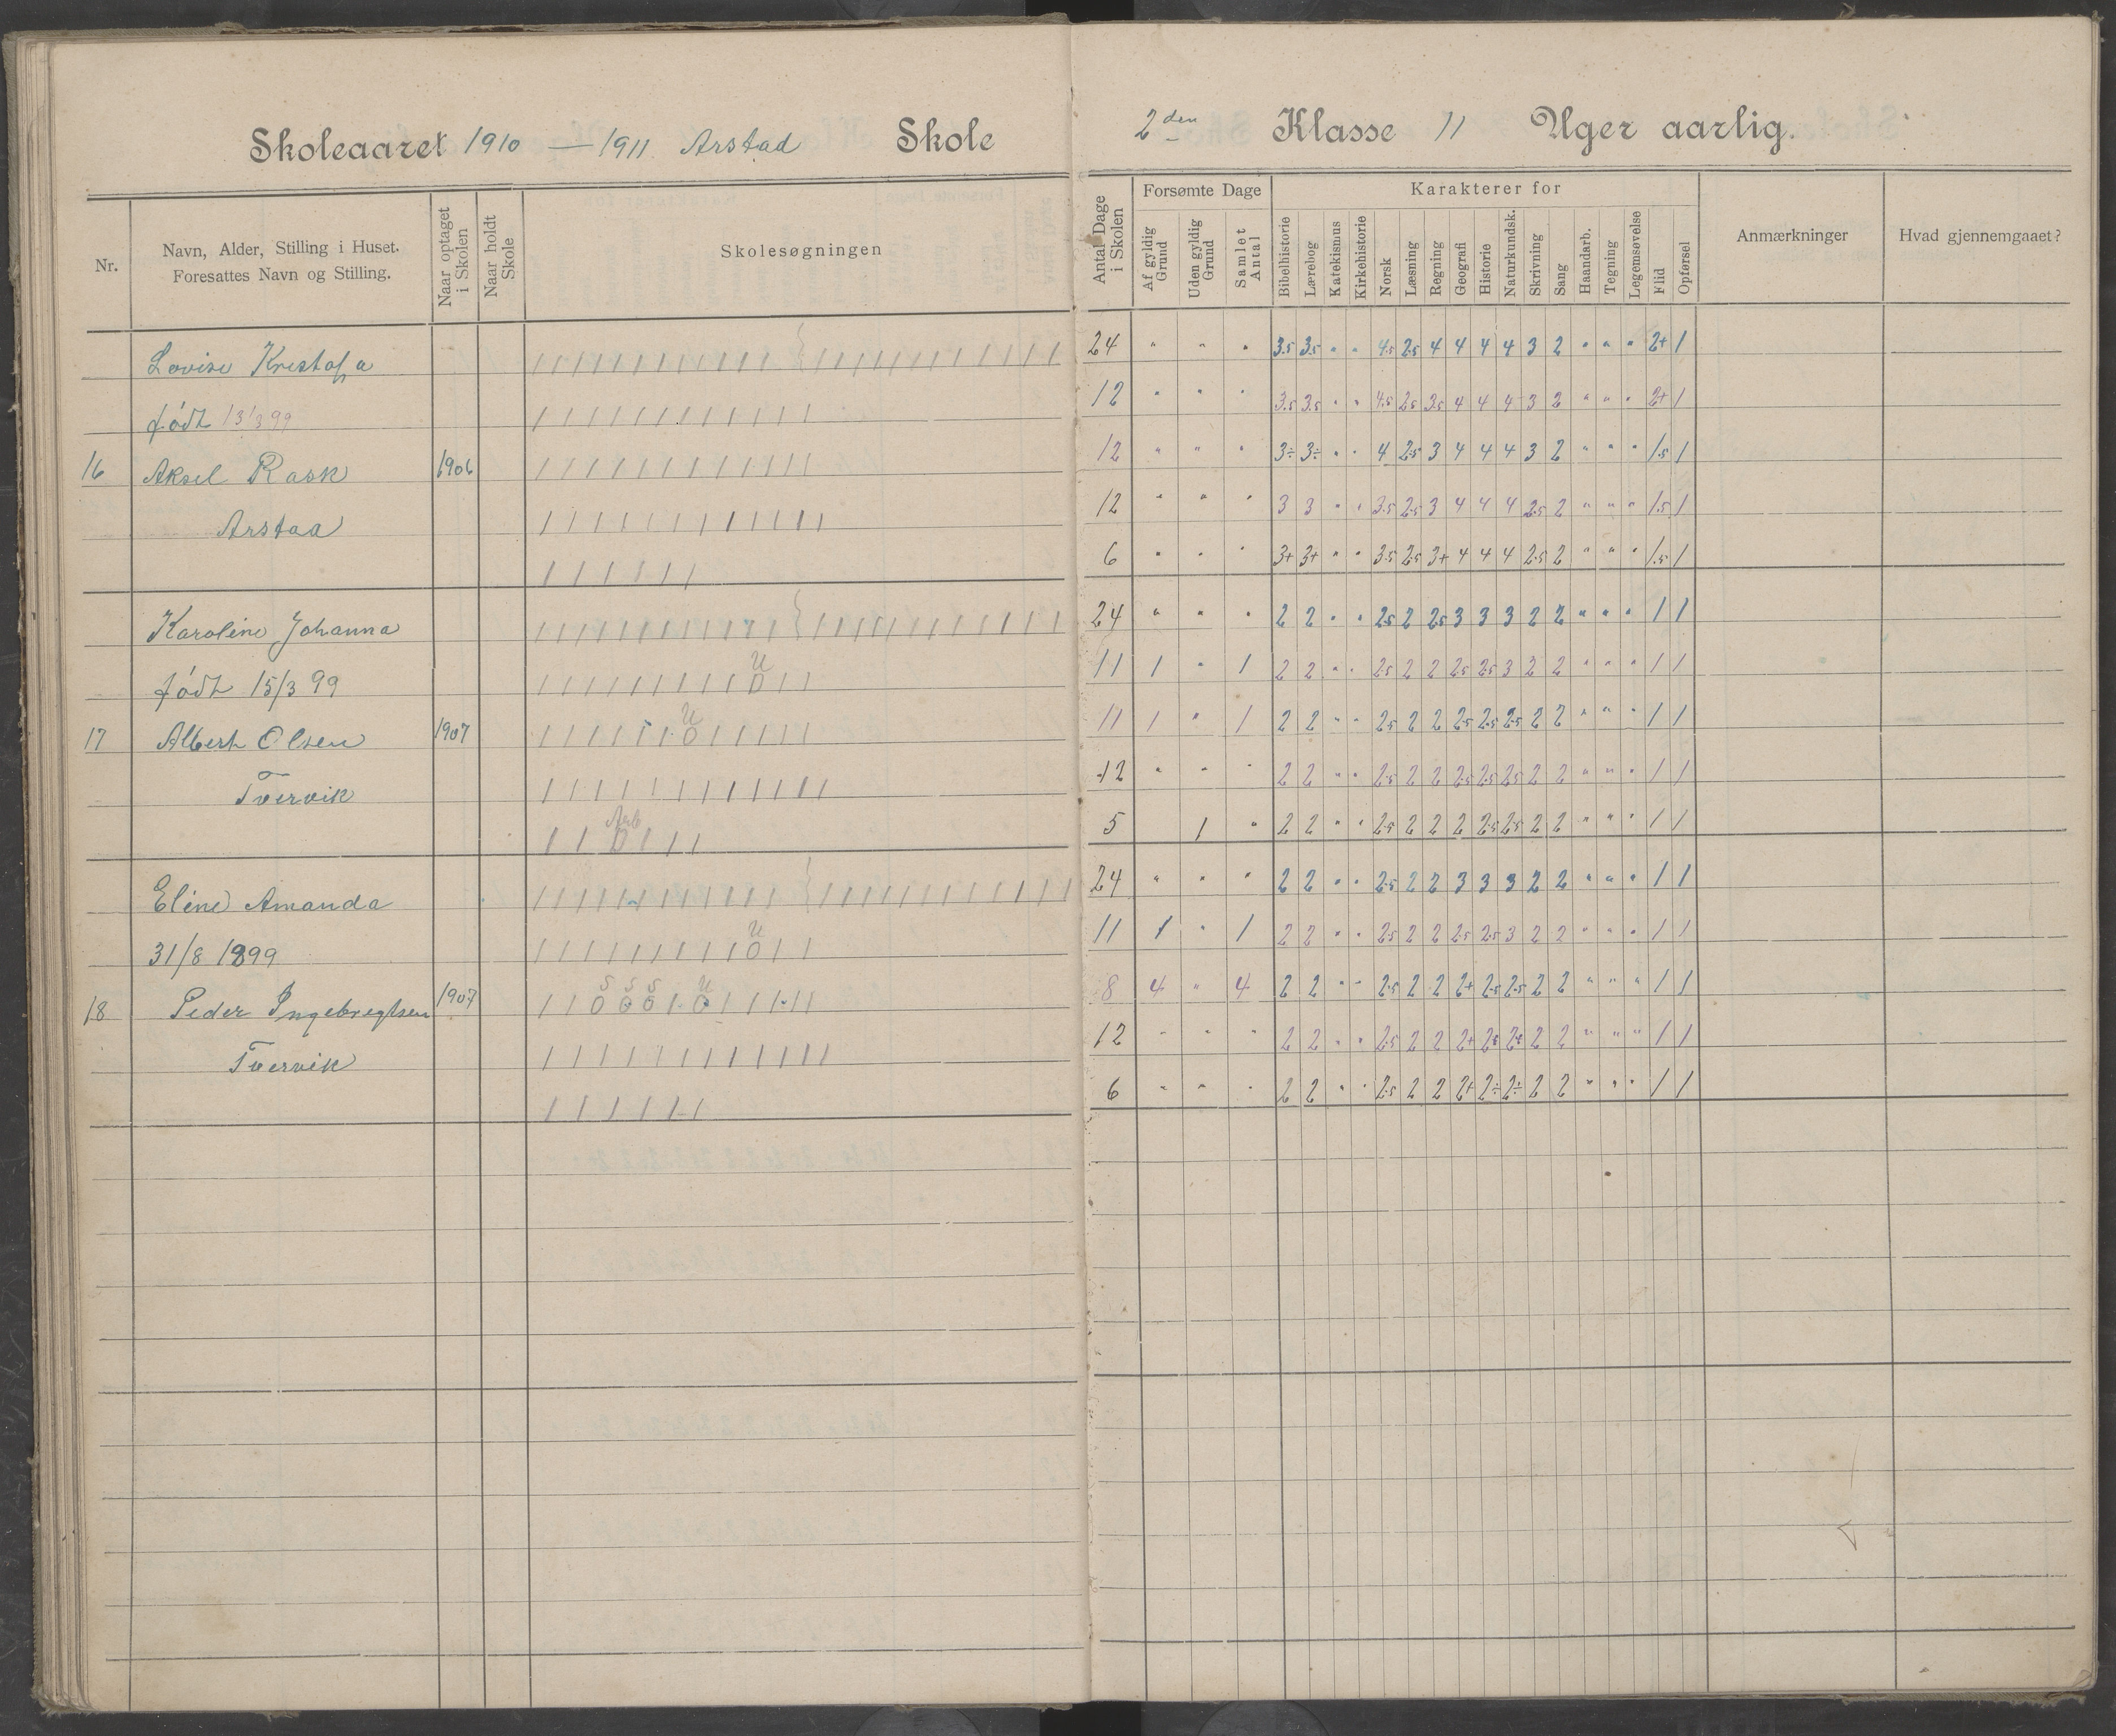 Skoleaaret 1910 — 1911 Arstad Skole 2den Klasse 11 Uger aarlig.
Nr. Navn, Alder, Stilling i Huset. Foresattes Navn og Stilling. Naar optaget i Skolen Naar holdt Skole Skolesøgningen Antal Dage i Skolen Forsømte Dage Karakterer for Anmærkninger Hvad gjennemgaaet?
Af gyldig Grund Uden gyldig Grund Samlet Antal Bibelhistorie Lærebog Katekismus Kirkehistorie Norsk Læsning Regning Geografi Historie Naturkundsk. Skrivning Sang Haandarb. Tegning Legemsøvelse Flid Opførsel
Lovise 24 " " " 3.5 3.5 " " 4.5 2.5 4 4 4 4 3 2 " " " 2+ 1
født 13/3 99 12 " " " 3.5 3.5 " " 4.5 2.5 3.5 4 4 4 3 2 " " " 2+ 1
16 Aksel Rask 1906 12 " " " 3÷ 3÷ " " 4 2.5 3 4 4 4 3 2 " " " 1.5 1
Arstaa 12 " " " 3 3 " " 3.5 2.5 3 4 4 4 2.5 2 " " " 1.5 1
6 " " " 3+ 3+ " " 3.5 2.5 3+ 4 4 4 2.5 2 " " " 1.5 1
Karoline Johanna 24 " " " 2 2 " " 2.5 2 2.5 3 3 3 2 2 " " " 1 1
født 15/3 99 U 0 11 1 " 1 2 2 " " 2.5 2 2 2.5 2.5 3 2 2 " " " 1 1
17 Albert Olsen 1907 U 0 11 1 " 1 2 2 " " 2.5 2 2 2.5 2.5 2.5 2 2 " " " 1 1
Tvervik 12 " " " 2 2 " " 2.5 2 2 2.5 2.5 2.5 2 2 " " " 1 1
Arb 0 5 1 " 2 2 " " 2.5 2 2 2 2.5 2.5 2 2 " " " 1 1
Eline Amanda 24 " " " 2 2 " " 2.5 2 2 3 3 3 2 2 " " " 1 1
31/8 1899 U 0 11 1 " 1 2 2 " " 2.5 2 2 2.5 2.5 3 2 2 " " " 1 1
18 Peder Ingebregtsen 1907 S S S U 0 0 0 0 8 4 " 4 2 2 " " 2.5 2 2 2+ 2.5 2.5 2 2 " " " 1 1
Tvervik 12 " " " 2 2 " " 2.5 2 2 2+ 2 2 " " " 1 1
6 " " " 2 2 " " 2.5 2 2 2+ 2÷ 2÷ 2 2 " " " 1 1